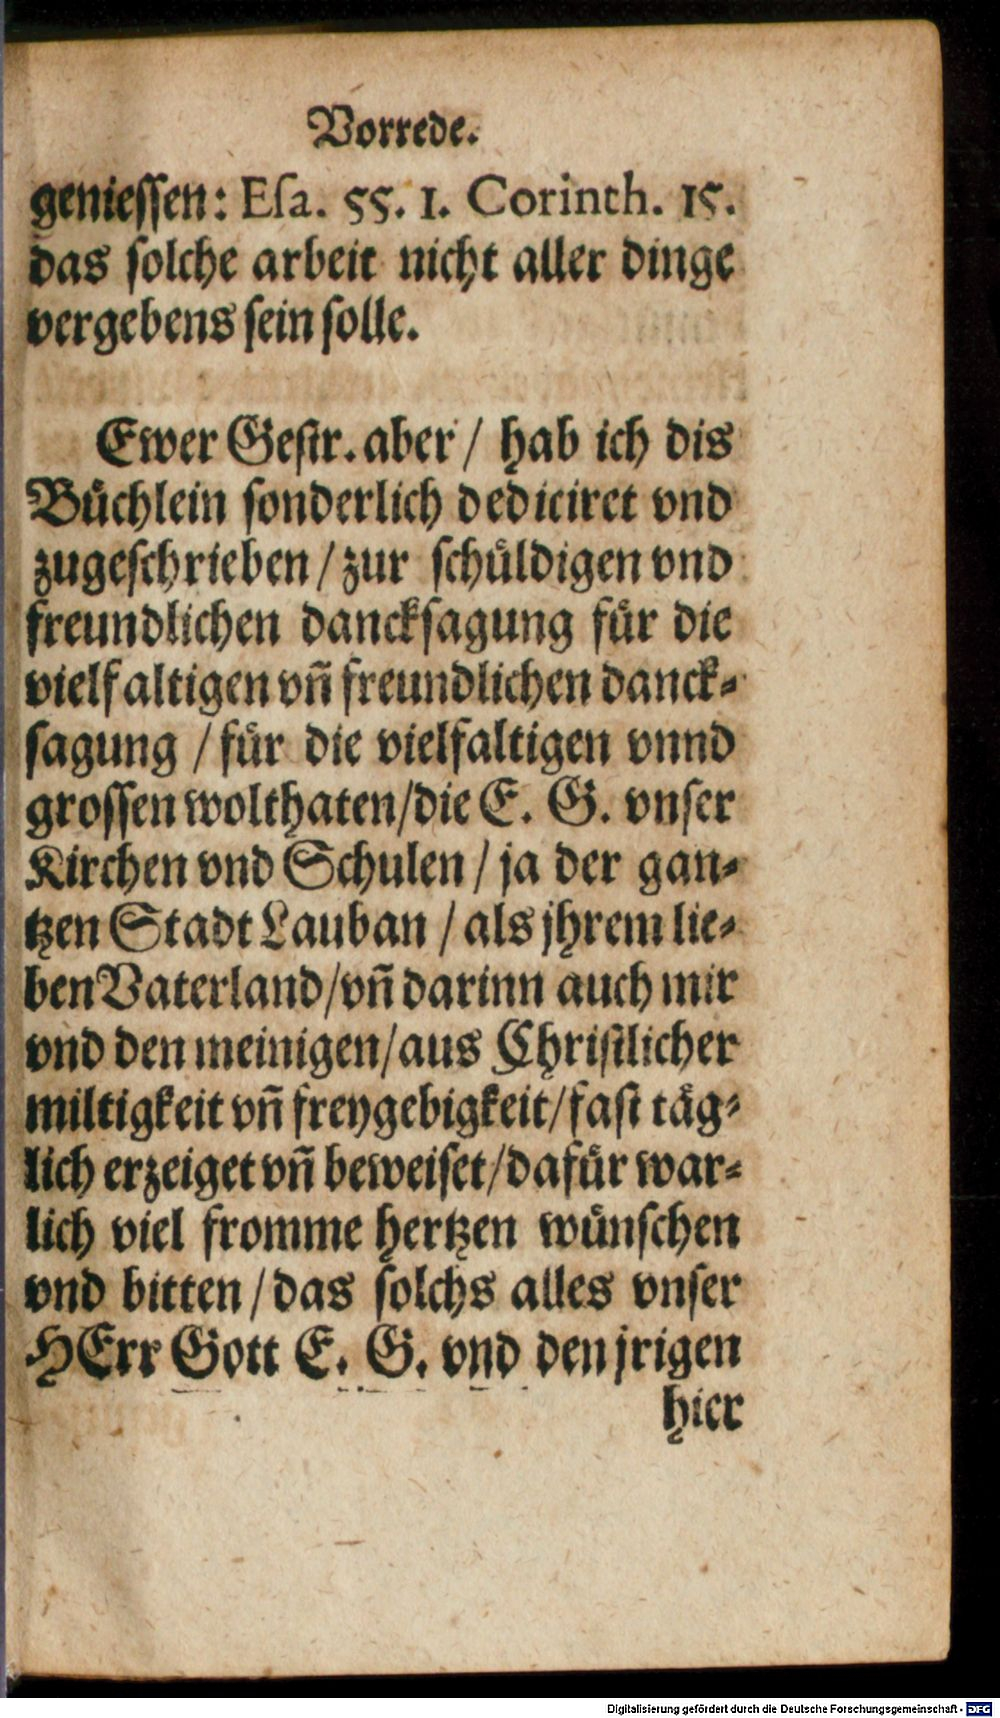 Vorrede.
geniessen: Esa. 55. 1. Corinth. 15.
das solche arbeit nicht aller dinge
vergebens sein solle.
Ewer Gestr. aber / hab ich dis
Büchlein sonderlich dediciret vnd
zugeschrieben / zur schüldigen vnd
freundlichen dancksagung für die
vielfaltigen vñ freundlichen danck-
sagung / für die vielfaltigen vnnd
grossen wolthaten / die E. G. vnser
Kirchen vnd Schulen / ja der gan-
tzen Stadt Lauban / als jhrem lie-
ben Vaterland / vñ darinn auch mir
vnd den meinigen / aus Christlicher
miltigkeit vñ freygebigkeit / fast täg-
lich erzeiget vñ beweiset / dafür war-
lich viel fromme hertzen wünschen
vnd bitten / das solchs alles vnser
HErr Gott E. G. vnd den jrigen
hier
Digitalisierung gefördert durch die Deutsche Forschungsgemeinschaft - DFG